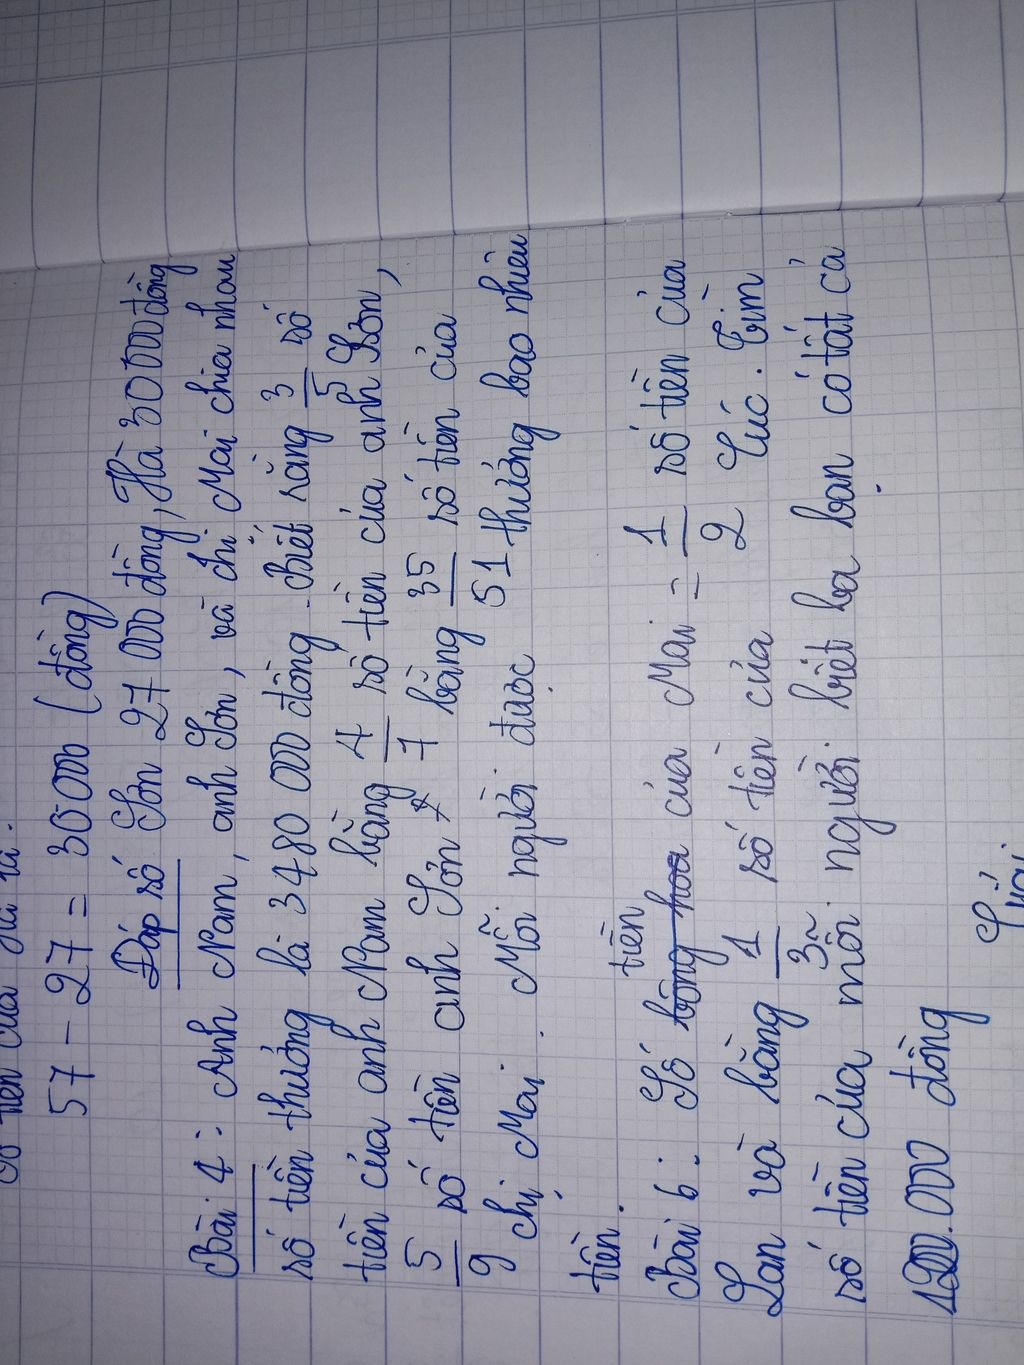 57 - 27 = 30 000 (đồng)
Đáp số Sơn 27 000 đồng, Hà 30 000 đồng
Bài 4: Anh Nam, anh Sơn, và chị Mai chia nhau
số tiền thưởng là 3 480 000 đồng. Biết rằng 3/5 số
tiền của anh Nam bằng 4/7 số tiền của anh Sơn,
5/9 số tiền anh Sơn bằng 35/51 số tiền của
chị Mai. Mỗi người được thưởng bao nhiêu
tiền.
Bài 6: Số tiền của Mai = 1/2 số tiền của
Lan và bằng 1/3 số tiền của Cúc. Tìm
số tiền của mỗi người. biết ba bạn có tất cả
1200.000 đồng